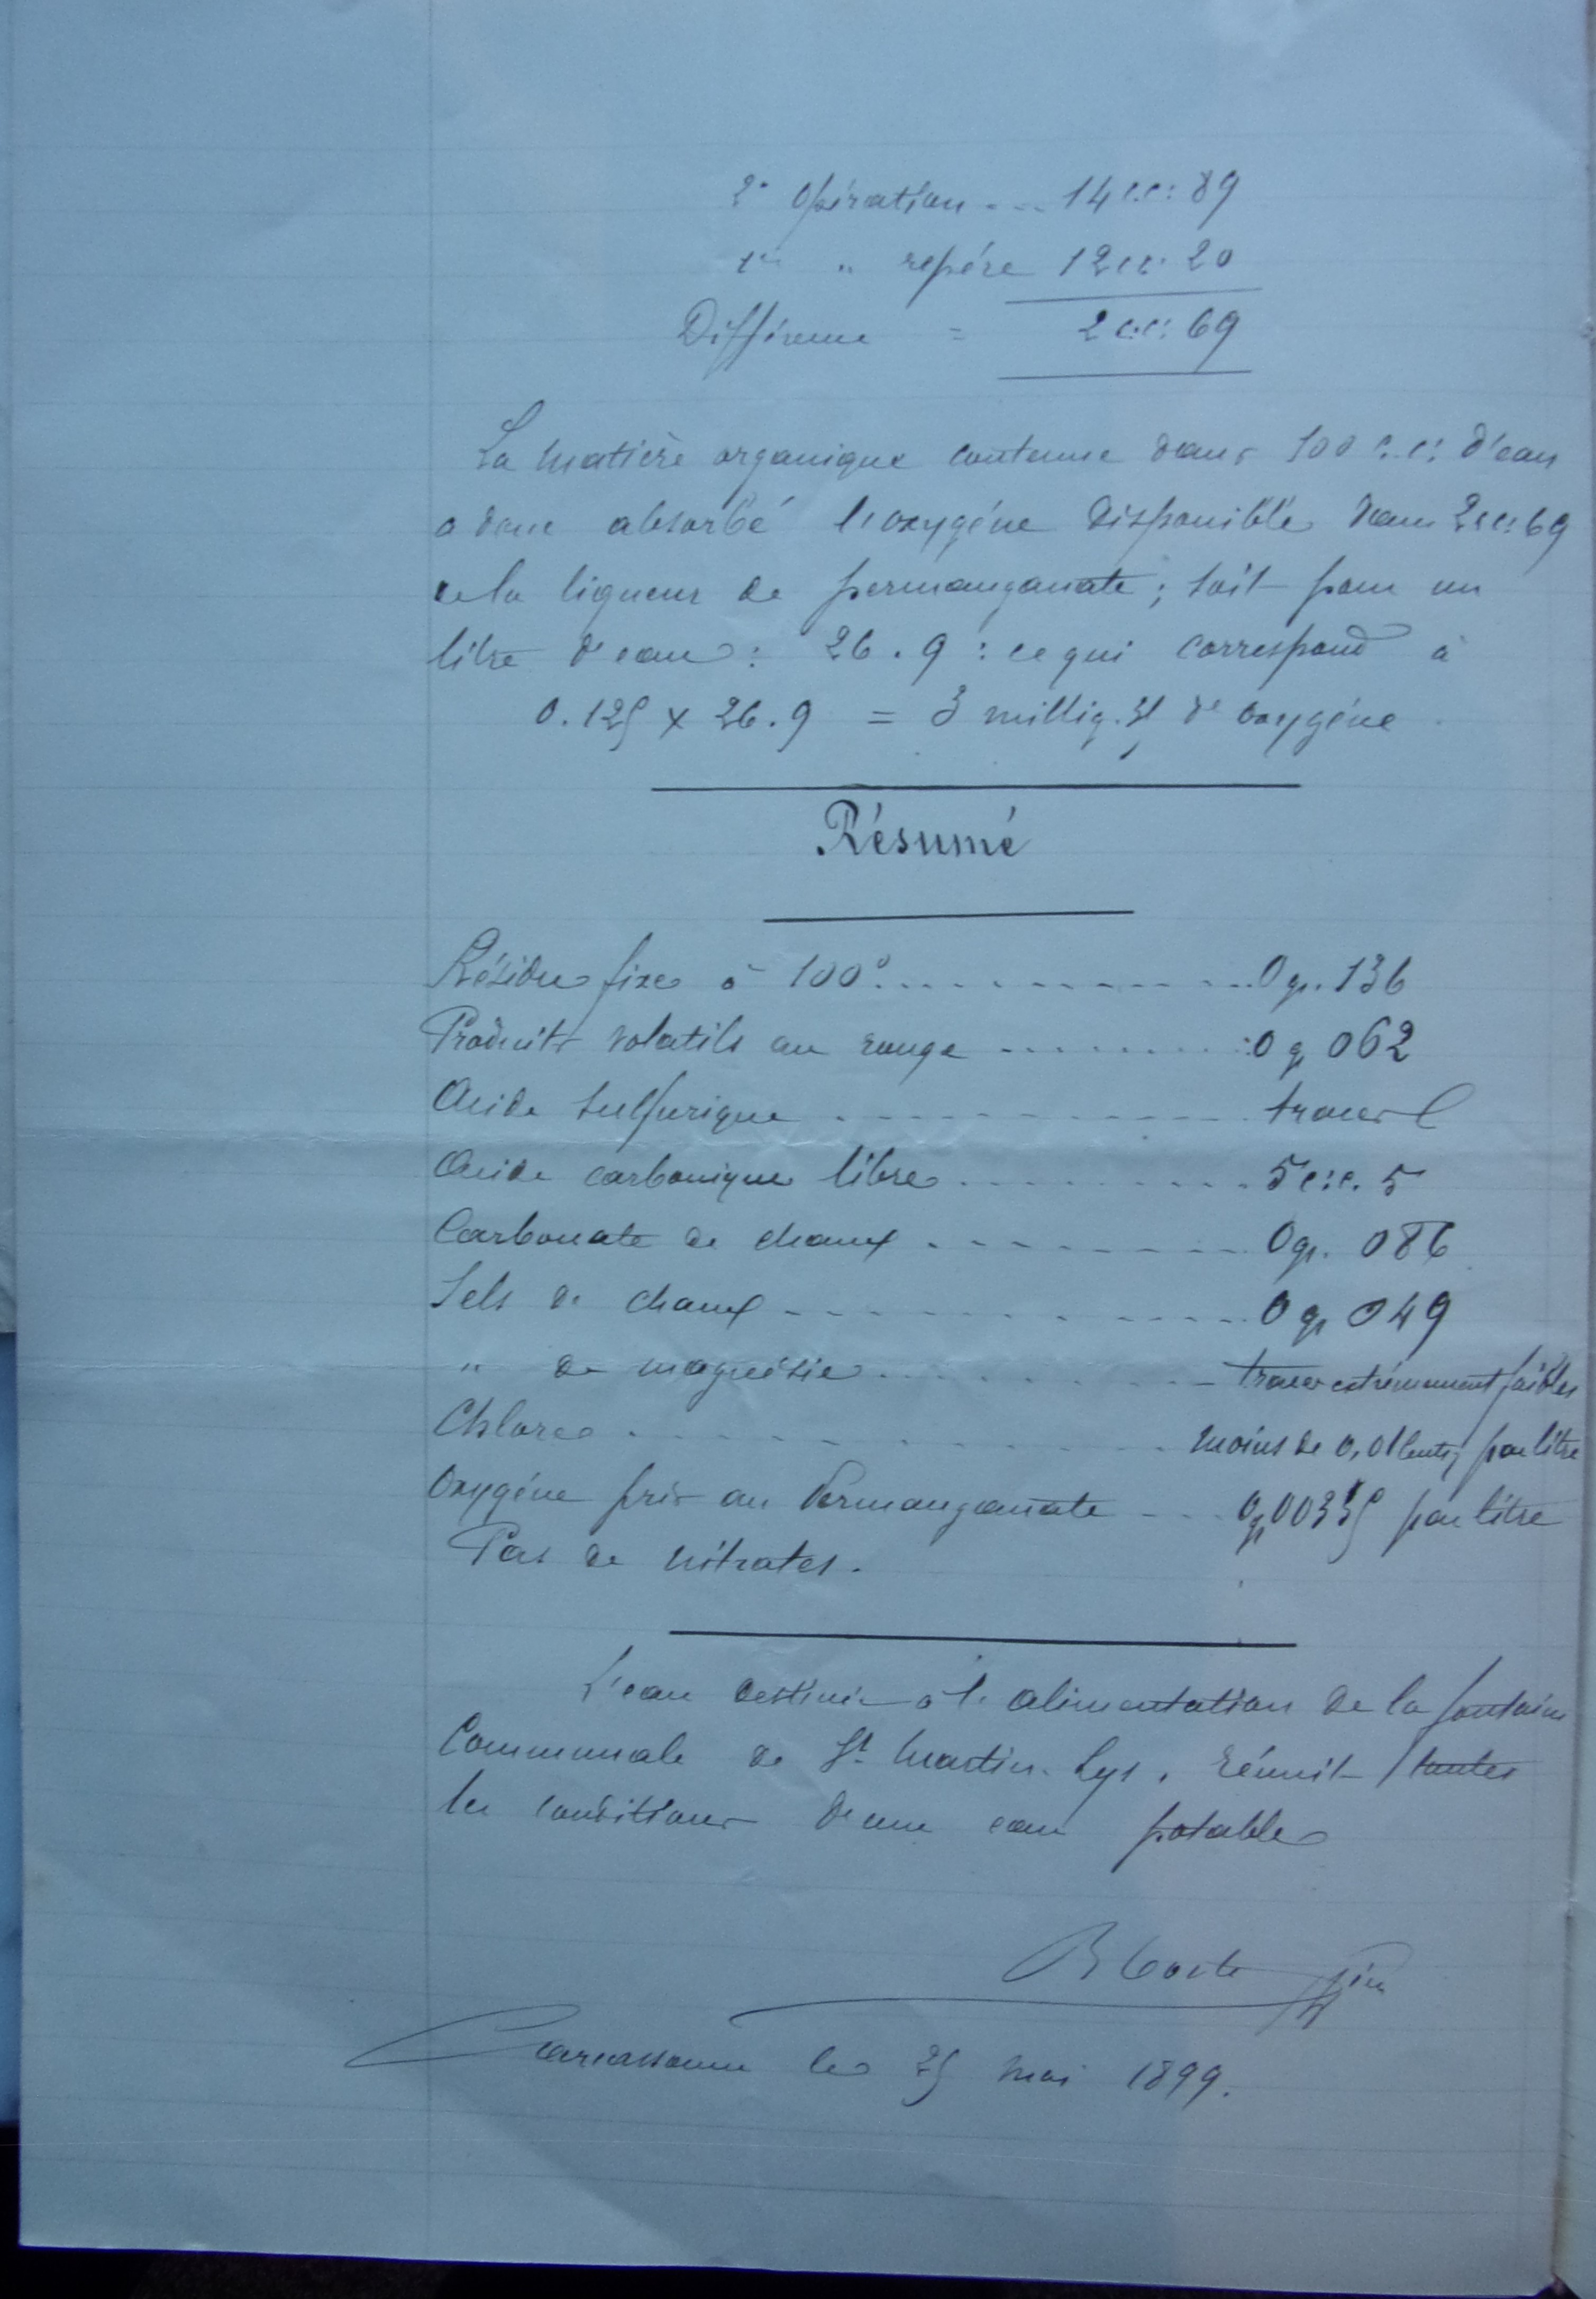 2e Opération ... 14 c.c: 89
1re " repère 12 cc. 20
Différence = 2 c.c: 69
La matière organique contenue dans 100 c.c: d'eau
a donc absorbé l'oxygéne disponible dans 2 cc: 69
de la liqueur de permanganate ; soit pour un
litre d'eau : 26.9 : ce qui correspond à
0.125 x 26.9 = 3 millig. 31 de oxygéne
Résumé
Résidu fixe à 100° ............ 0 gr. 136
Produits volatils au rouge ......... 0 g 062
Acide sulfurique ............ traces
Acide carbonique libre ......... 5 c:c. 5
Carbonate de chaux ......... 0 gr. 086
Sels de chaux ............ 0 gr 049
" de magnésie ............ traces extrêmement faibles
Chlore ............ moins de 0,01 centig par litre
Oxygéne pris au Permanganate ... 0 gr 00335 par litre
Pas de nitrates.
L'eau destinée à l'alimentation de la fontaine
Communale de St Martin-Lys, réunit toutes
les conditions d'une eau potable
Carcassonne le 25 mai 1899.